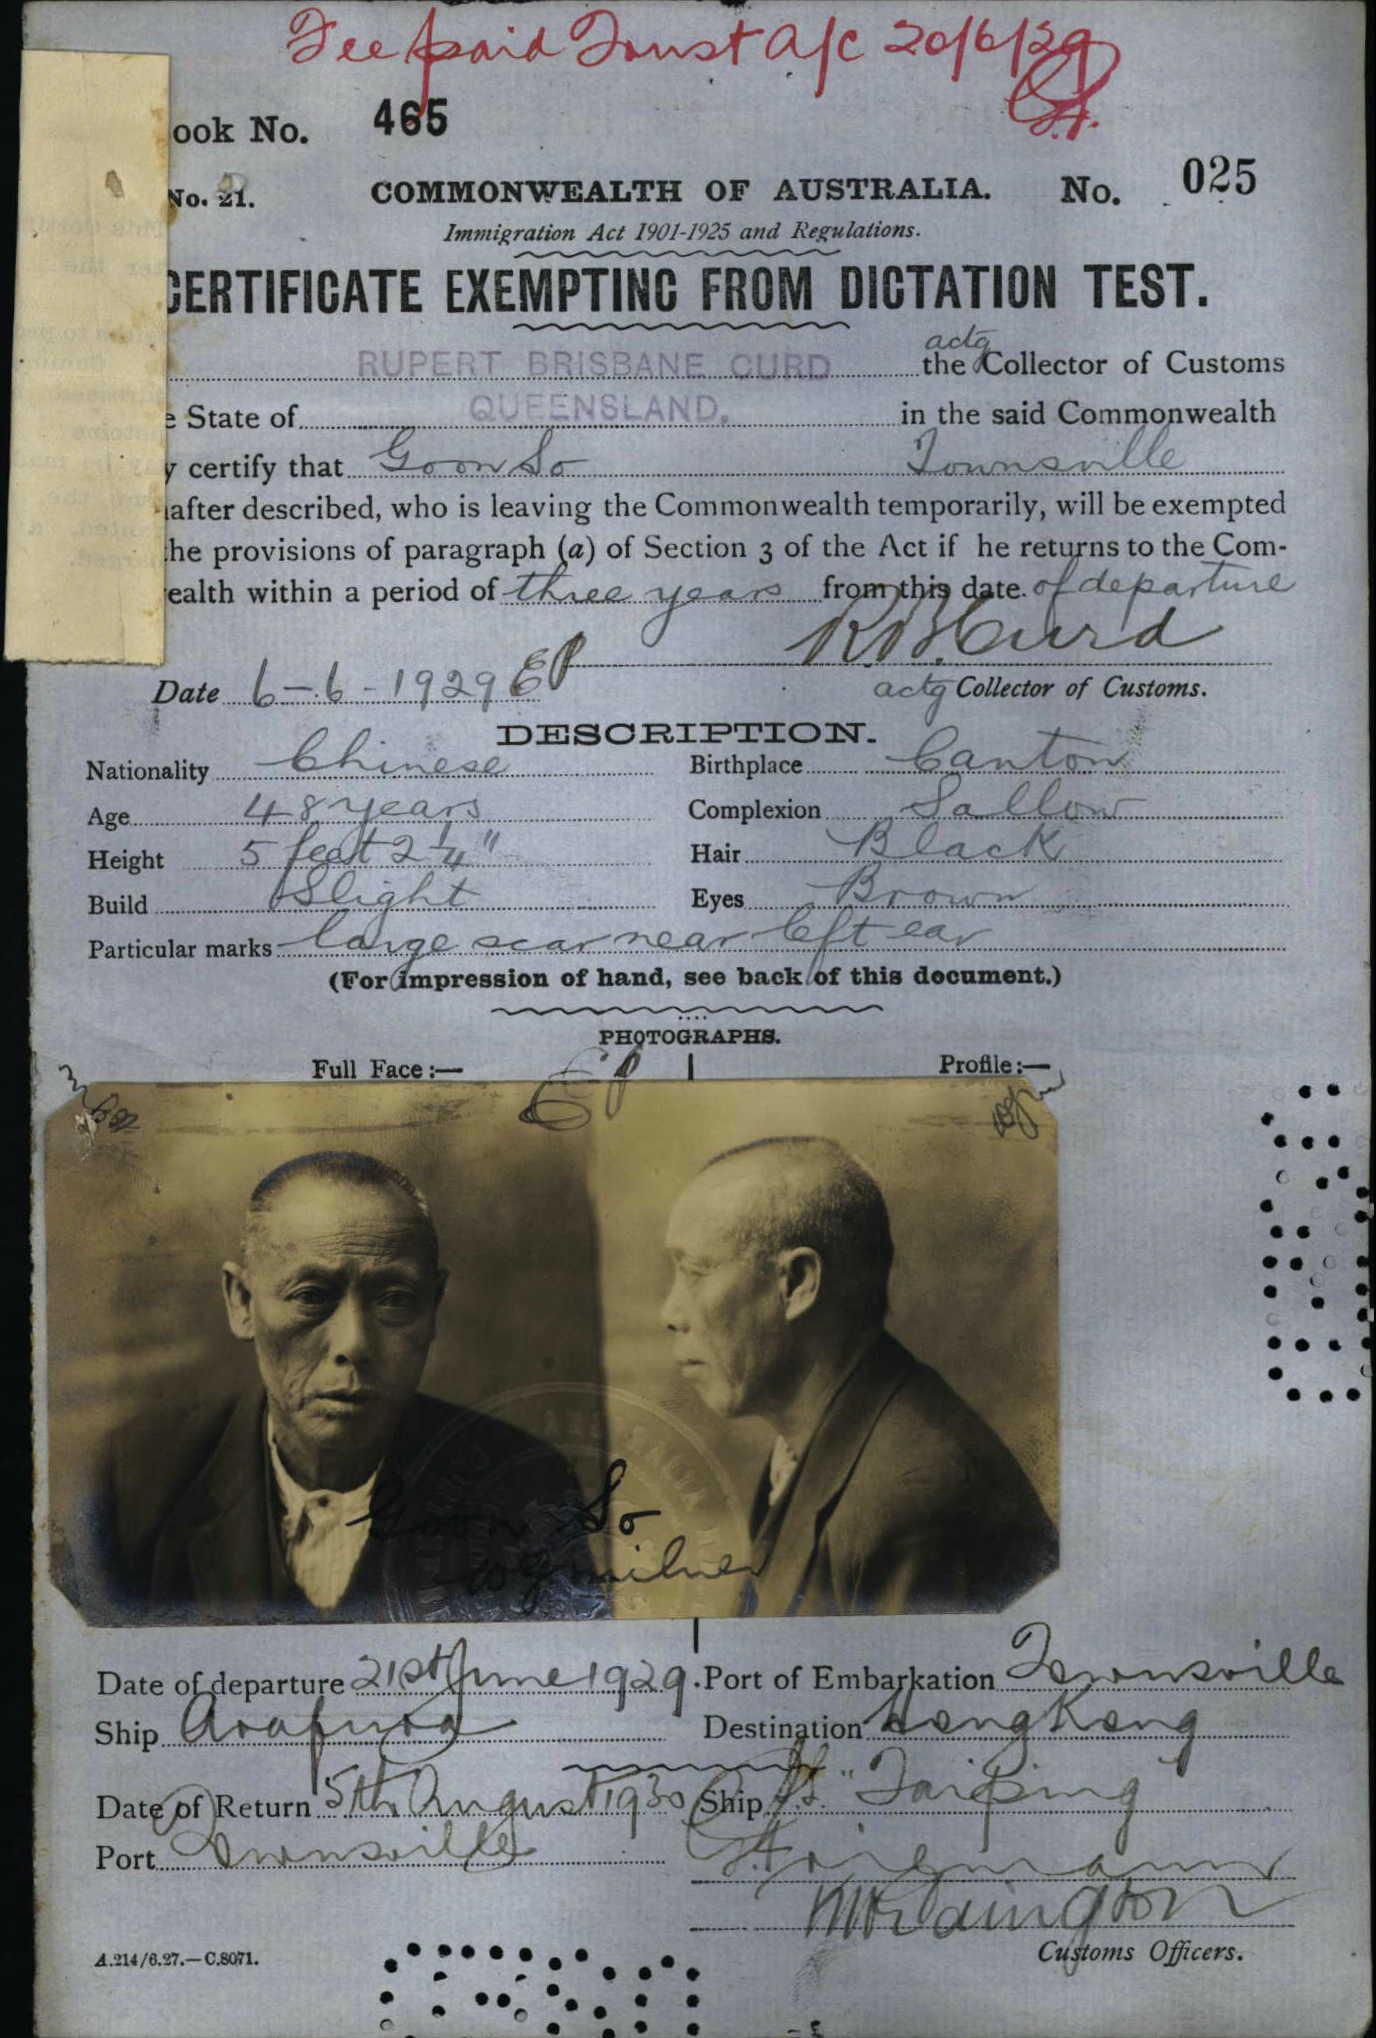 Fee paid Trust a/c 20/6/29
ook No. 465
No. 21. COMMONWEALTH OF AUSTRALIA. No. 025
Immigration Act 1901-1925 and Regulations.
CERTIFICATE EXEMPTING FROM DICTATION TEST.
actg
RUPERT BRISBANE CURD the Collector of Customs
e State of QUEENSLAND. in the said Commonwealth
y certify that Goon So Townsville
after described, who is leaving the Commonwealth temporarily, will be exempted
he provisions of paragraph (a) of Section 3 of the Act if he returns to the Com-
ealth within a period of three years from this date of departure
R B Curd
Date 6-6-1929 EP actg Collector of Customs.
DESCRIPTION.
Nationality Chinese Birthplace Canton
Age 48 years Complexion Sallow
Height 5 feet 2 1/4" Hair Black
Build Slight Eyes Brown
Particular marks large scar near left ear
(For impression of hand, see back of this document.)
PHOTOGRAPHS.
Full Face:— Profile:—
EP
Goon So
WGMilner
Date of departure 21st June 1929. Port of Embarkation Townsville
Ship Arafura Destination Hong Kong
Date of Return 5th August 1930 Ship S.S. "Taiping"
Port Townsville
Customs Officers.
A.214/6.27.—C.8071.